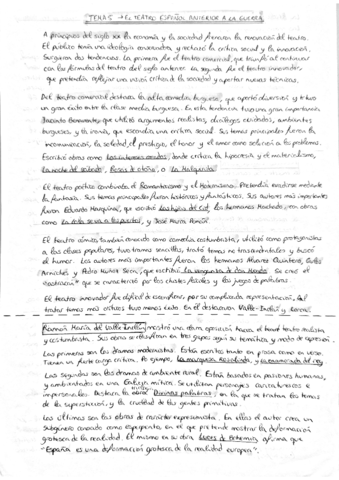 TEMA 5 → EL TEATRO ESPAÑOL ANTERIOR A LA GUERRA
A principios del siglo XX la economía y la sociedad frenaron la renovación del teatro.
El público tenía una ideología conservadora, y rechazó la crítica social y la innovación.
Surgieron dos tendencias. La primera fue el teatro comercial, que triunfó al continuar
con las fórmulas del teatro del siglo anterior. La segunda fue el teatro innovador,
que pretendía reflejar una visión crítica de la sociedad y aportar nuevas técnicas.
Del teatro comercial destaca la alta comedia burguesa, que aportó diversión y tuvo
un gran éxito entre la clase media burguesa. En esta tendencia tuvo una gran importancia
Jacinto Benavente que utilizó argumentos realistas, diálogos cuidados, ambientes
burgueses y la ironía, que escondía una crítica social. Sus temas principales fueron la
incomunicación, la soledad, el prestigio, el honor y el amor como solución a los problemas.
Escribió obras como Los intereses creados, donde critica la hipocresía y el materialismo,
La noche del sábado, Rosas de otoño, o La Malquerida.
El teatro poético combinaba el Romanticismo y el Modernismo. Pretendía evadirse mediante
la fantasía. Sus temas principales fueron históricos y fantásticos. Sus autores más importantes
fueron Eduardo Marquina, que escribió Las hijas del Cid, los hermanos Machado, con obras
como La Lola se va a los puertos, y José María Pemán.
El teatro cómico también conocido como comedia costumbrista, utilizó como protagonistas
a las clases populares, tuvo tramas sencillas, trató temas no trascendentales y buscó
el humor. Los autores más importantes fueron los hermanos Álvarez Quintero, Carlos
Arniches y Pedro Muñoz Seca, que escribió La venganza de Don Mendo. Se creó el
"astracán" que se caracterizó por los chistes fáciles y los juegos de palabras.
El teatro innovador fue difícil de escenificar por su complicada representación. Al
tratar temas más críticos tuvo menos éxito. En él destacaron Valle-Inclán y Lorca.
Ramón María del Valle Inclán mostró una clara oposición hacia el teatro realista
y costumbrista. Sus obras se clasifican en tres grupos según su temática y modo de expresión.
Las primeras son los dramas modernistas. Están escritos tanto en prosa como en verso.
Tienen un fuerte cargo crítico. Por ejemplo, La marquesa Rosalinda, y La enamorada del rey
Las segundas son los dramas de ambiente rural. Están basados en pasiones humanas,
y ambientados en una Galicia mítica. Se utilizan personajes caricaturescos e
impersonales. Destaca la obra Divinas palabras, en la que se tratan los temas
de la superstición, y la crueldad de las gentes primitivas.
Las últimas son las obras de carácter expresionista. En ellas el autor crea un
subgénero conocido como esperpento, en el que pretende mostrar la deformación
grotesca de la realidad. Él mismo en su obra Luces de Bohemia, afirma que
"España es una deformación grotesca de la realidad europea".